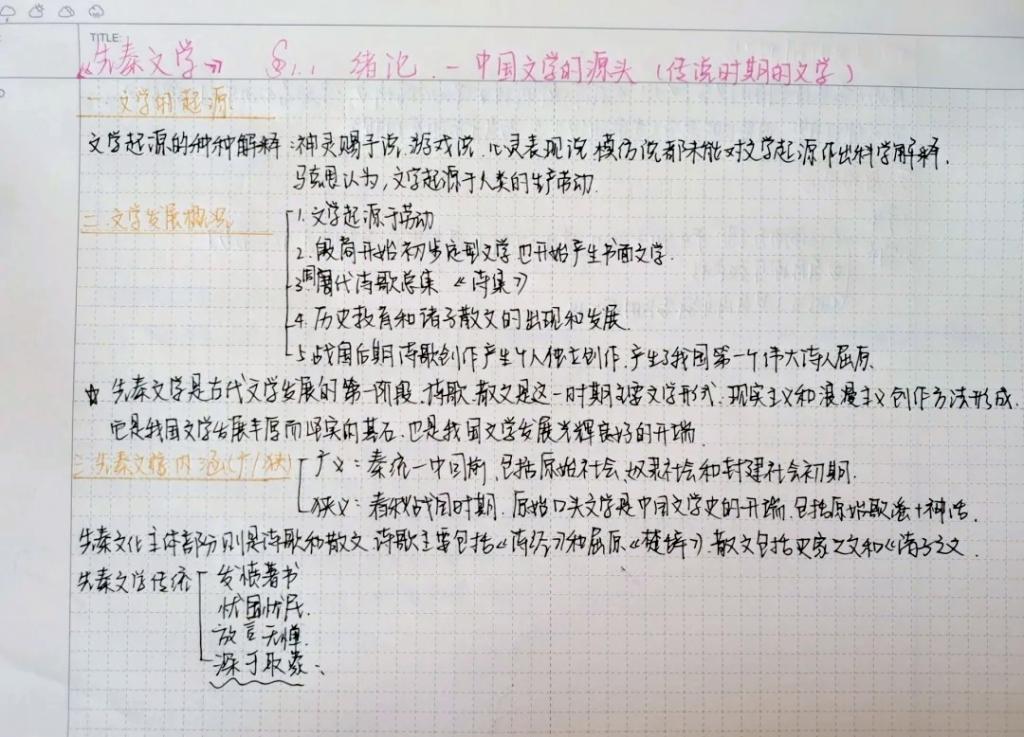 TITLE:
《先秦文学》 §1.1 绪论.－中国文学的源头（传说时期的文学）
一.文学的起源
文学起源的种种解释：神灵赐予说.游戏说.心灵表现说.模仿说都未能对文学起源作出科学解释.
马克思认为,文学起源于人类的生产劳动.
二.文学发展概况
1.文学起源于劳动
2.殷商开始初步定型文学也开始产生书面文学.
3.周代诗歌总集《诗集》
4.历史教育和诸子散文的出现和发展.
5.战国后期诗歌创作产生个人独立创作.产生了我国第一个伟大诗人屈原.
☆先秦文学是古代文学发展的第一阶段.诗歌.散文是这一时期主要文学形式.现实主义和浪漫主义创作方法形成.
它是我国文学发展丰厚而坚实的基石.也是我国文学发展光辉良好的开端.
三.先秦文学内涵(广/狭)
广义：秦统一中国前.包括原始社会.奴隶社会和封建社会初期.
狭义：春秋战国时期.原始口头文学是中国文学史的开端.包括原始歌谣+神话.
先秦文化主体部分则是诗歌和散文.诗歌主要包括《诗经》和屈原《楚辞》.散文包括史家之文和《诸子之文.
先秦文学传统
发愤著书
忧国忧民.
放言无惮.
深于取象、